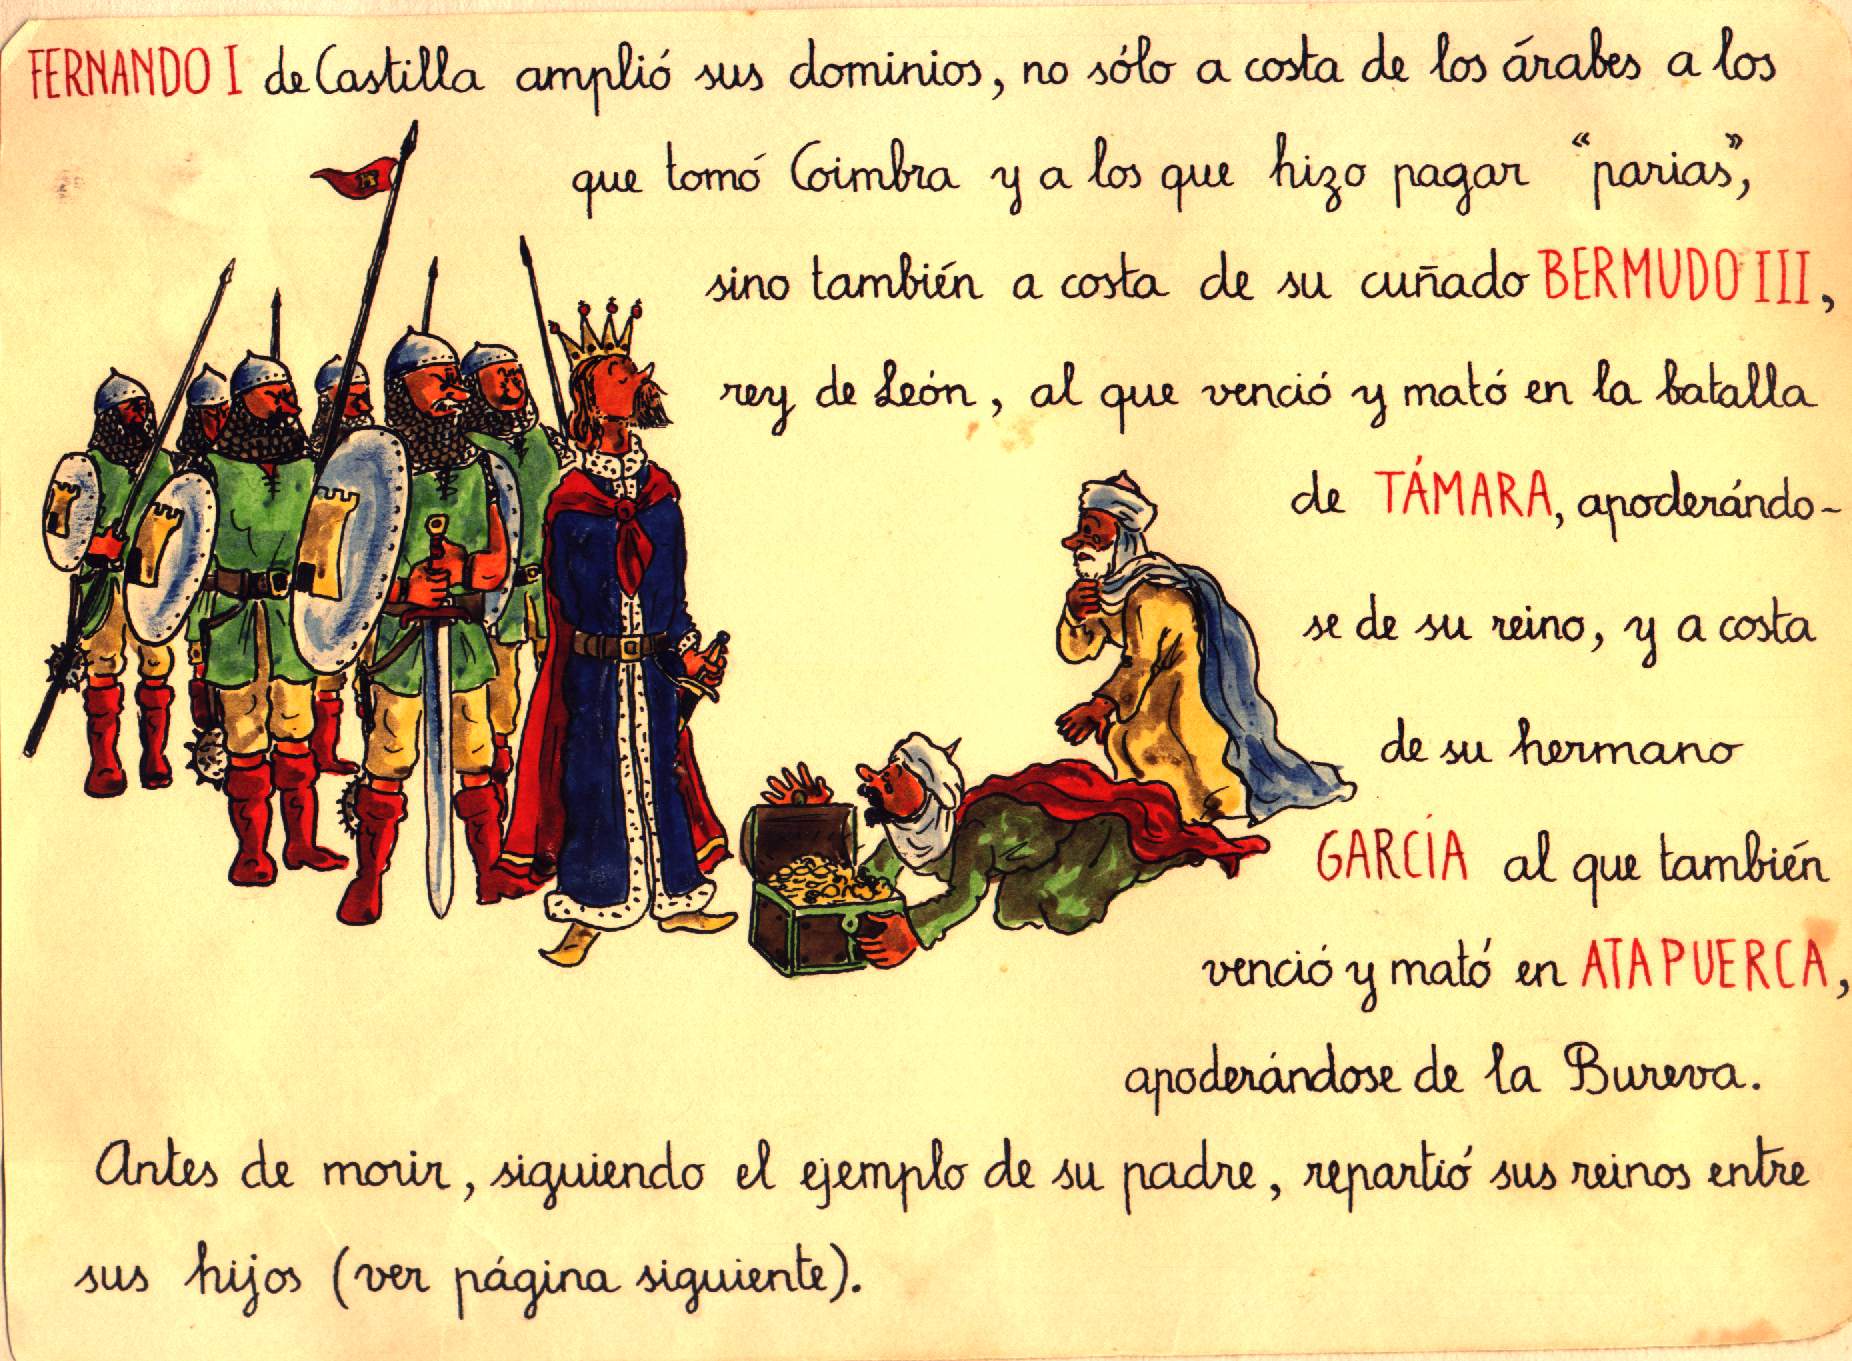 FERNANDO I de Castilla amplió sus dominios, no sólo a costa de los árabes a los
que tomó Coimbra y a los que hizo pagar "parias",
sino también a costa de su cuñado BERMUDO III,
rey de León, al que venció y mató en la batalla
de TÁMARA, apoderándo-
se de su reino, y a costa
de su hermano
GARCÍA al que también
venció y mató en ATAPUERCA,
apoderándose de la Bureva.
Antes de morir, siguiendo el ejemplo de su padre, repartió sus reinos entre
sus hijos (ver página siguiente).